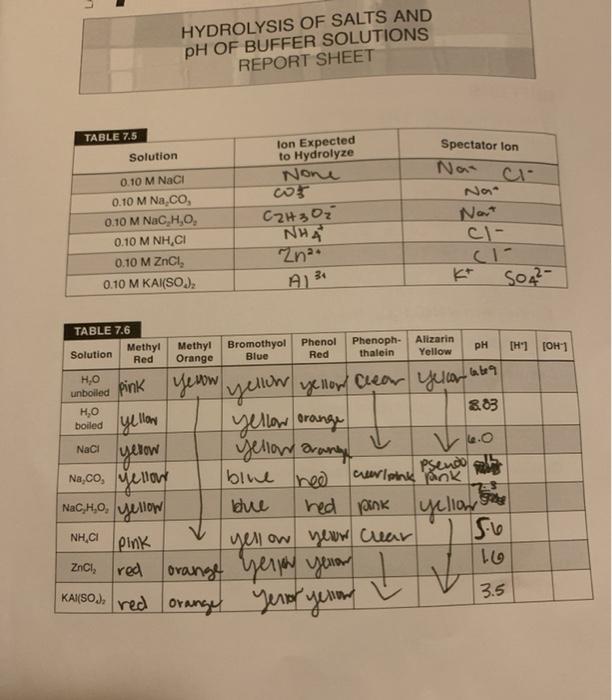 HYDROLYSIS OF SALTS AND
pH OF BUFFER SOLUTIONS
REPORT SHEET
TABLE 7.5
Solution Ion Expected to Hydrolyze Spectator Ion
0.10 M NaCl None Na+ Cl-
0.10 M Na₂CO₃ Na+
0.10 M NaC₂H₃O₂ C2H3O2- Na+
0.10 M NH₄Cl NH4+ Cl-
0.10 M ZnCl₂ Zn2+ Cl-
0.10 M KAl(SO₄)₂ Al3+ K+ SO42-
TABLE 7.6
Solution Methyl Red Methyl Orange Bromothyol Blue Phenol Red Phenoph-thalein Alizarin Yellow pH [H+] [OH-]
H₂O unboiled pink yellow yellow yellow clear
H₂O boiled yellow yellow orange 8.83
NaCl yellow yellow orange 6.0
Na₂CO₃ yellow blue red clear/pink pseudo pink
NaC₂H₃O₂ yellow blue red pink yellow
NH₄Cl pink yellow yellow clear 5.6
ZnCl₂ red orange yellow yellow
KAl(SO₄)₂ red orange yellow yellow 3.5